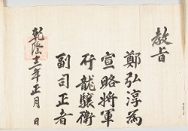 教旨
鄭弘淳為
宣略將軍
行龍驤衛
副司正者
乾隆十二年正月 日